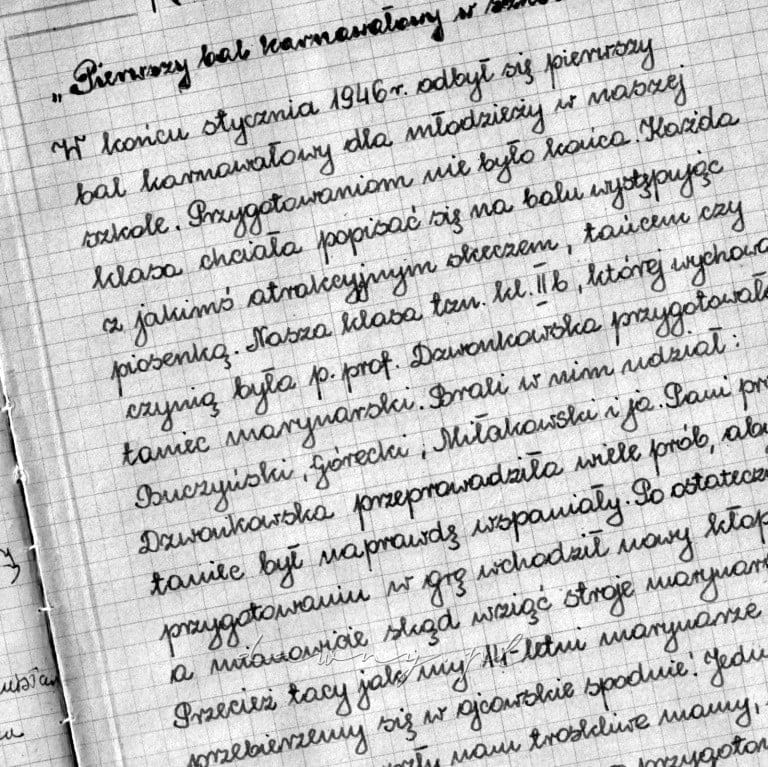 „Pierwszy bal karnawałowy w
W końcu stycznia 1946 r. odbył się pierwszy
bal karnawałowy dla młodzieży w naszej
szkole. Przygotowaniom nie było końca. Każda
klasa chciała popisać się na balu występując
z jakimś atrakcyjnym skeczem, tańcem czy
piosenką. Nasza klasa tzn. kl. II b, której wychowa
czynią była p. prof. Dzwonkowska przygotowała
taniec marynarski. Brali w nim udział:
Buczyński, Górecki, Miłakowski i ja. Pani pr
Dzwonkowska przeprowadziła wiele prób, aby
taniec był naprawdę wspaniały. Po ostatecz
przygotowaniu w grę wchodził nowy kłop
a mianowicie skąd wziąć stroje marynar
Przecież tacy jak my 14-letni marynarze
przebierzemy się w ojcowskie spodnie! Jedn
nam troskliwe mamy,
przygotow